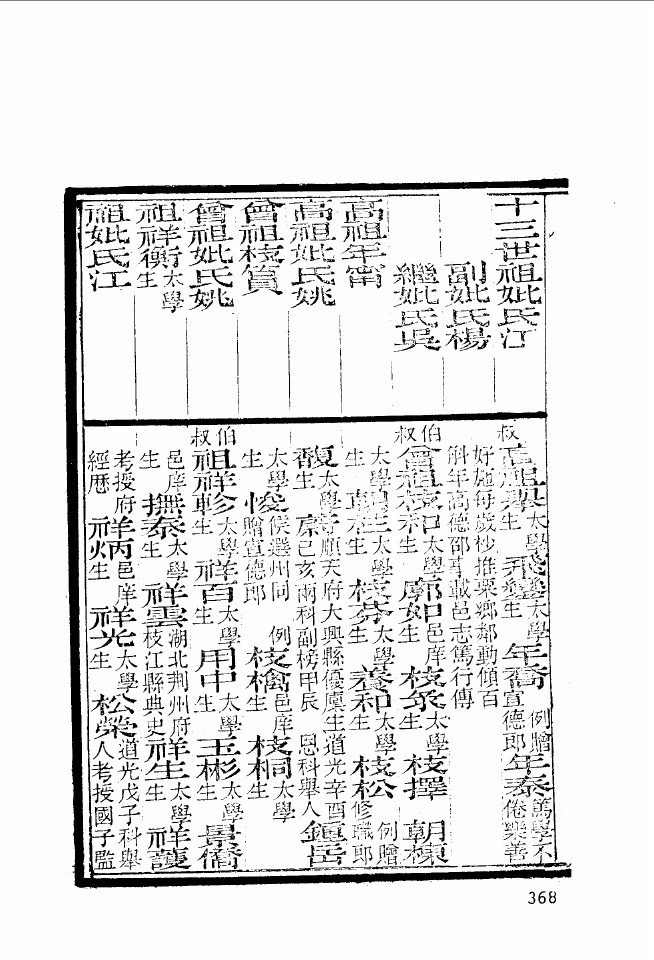 十三世祖妣氏江
副妣氏楊
繼妣氏吳
高祖年甯
高祖妣氏姚
曾祖枝篔
曾祖妣氏姚
祖祥衡太學生
祖妣氏江
叔高祖 太學生 飛 太學生 年喬例贈宣德郎 年泰篤學不倦樂善
好施每歲杪推粟鄉鄰動傾百
斛年高德邵事載邑志篤行傳
伯叔曾祖枝和太學生 廓如邑庠生 枝眾太學生 枝擇 朝棟
太學生 太學生 枝芬太學生 養和太學生 枝松例贈修職郎
馥太學生 順天府大興縣優廩生道光辛酉己亥兩科副榜甲辰恩科舉人 鍾岳
太學生 悛候選州同例贈宣德郎 枝檎邑庠生 枝桐太學生
伯叔祖祥軫太學生 祥百太學生 用中太學生 玉彬太學生 景僑
邑庠生 撫泰太學生 祥雲湖北荆州府枝江縣典史 祥生太學生 祥護
考授府經歷 祥炳邑庠生 祥光太學生 松榮道光戊子科舉人考授國子監
368